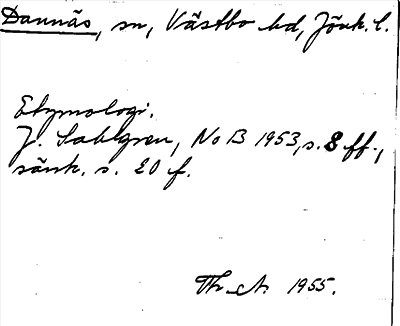 Dannäs, sn, Västbo hd, Jönk. l.
Etymologi.
J. Sahlgren, NoB 1953, s. 8 ff.,
särsk. s. 20 f.
Th. A. 1955.